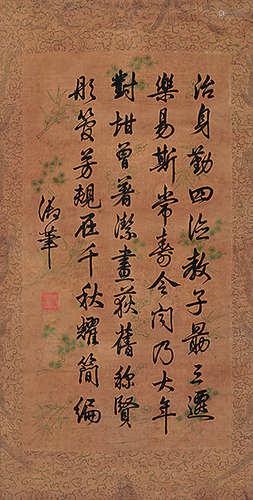 治身勤四德教子最三遷
樂易斯常壽令聞乃大年
對坩曾著潔畫荻舊稱賢
彤管芳規在千秋耀簡編
御筆